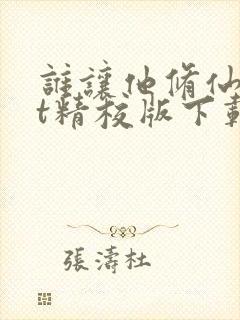 誰讓他脩仙
t精校版下載
張濤杜